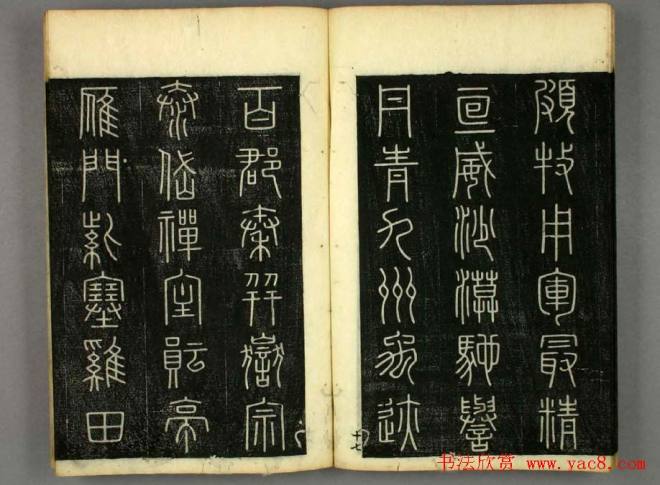 頗牧用軍最精
宣威沙漠馳譽
丹青九州禹迹
百郡秦并嶽宗
泰岱禪主云亭
雁門紫塞雞田
十七
书法欣赏 www.yac8.com